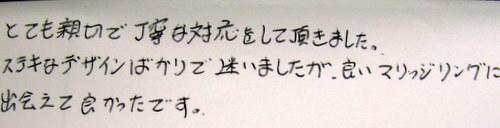 とても親切で丁寧な対応をして頂きました。
ステキなデザインばかりで迷いましたが、良いマリッジリングに
出会えて良かったです。